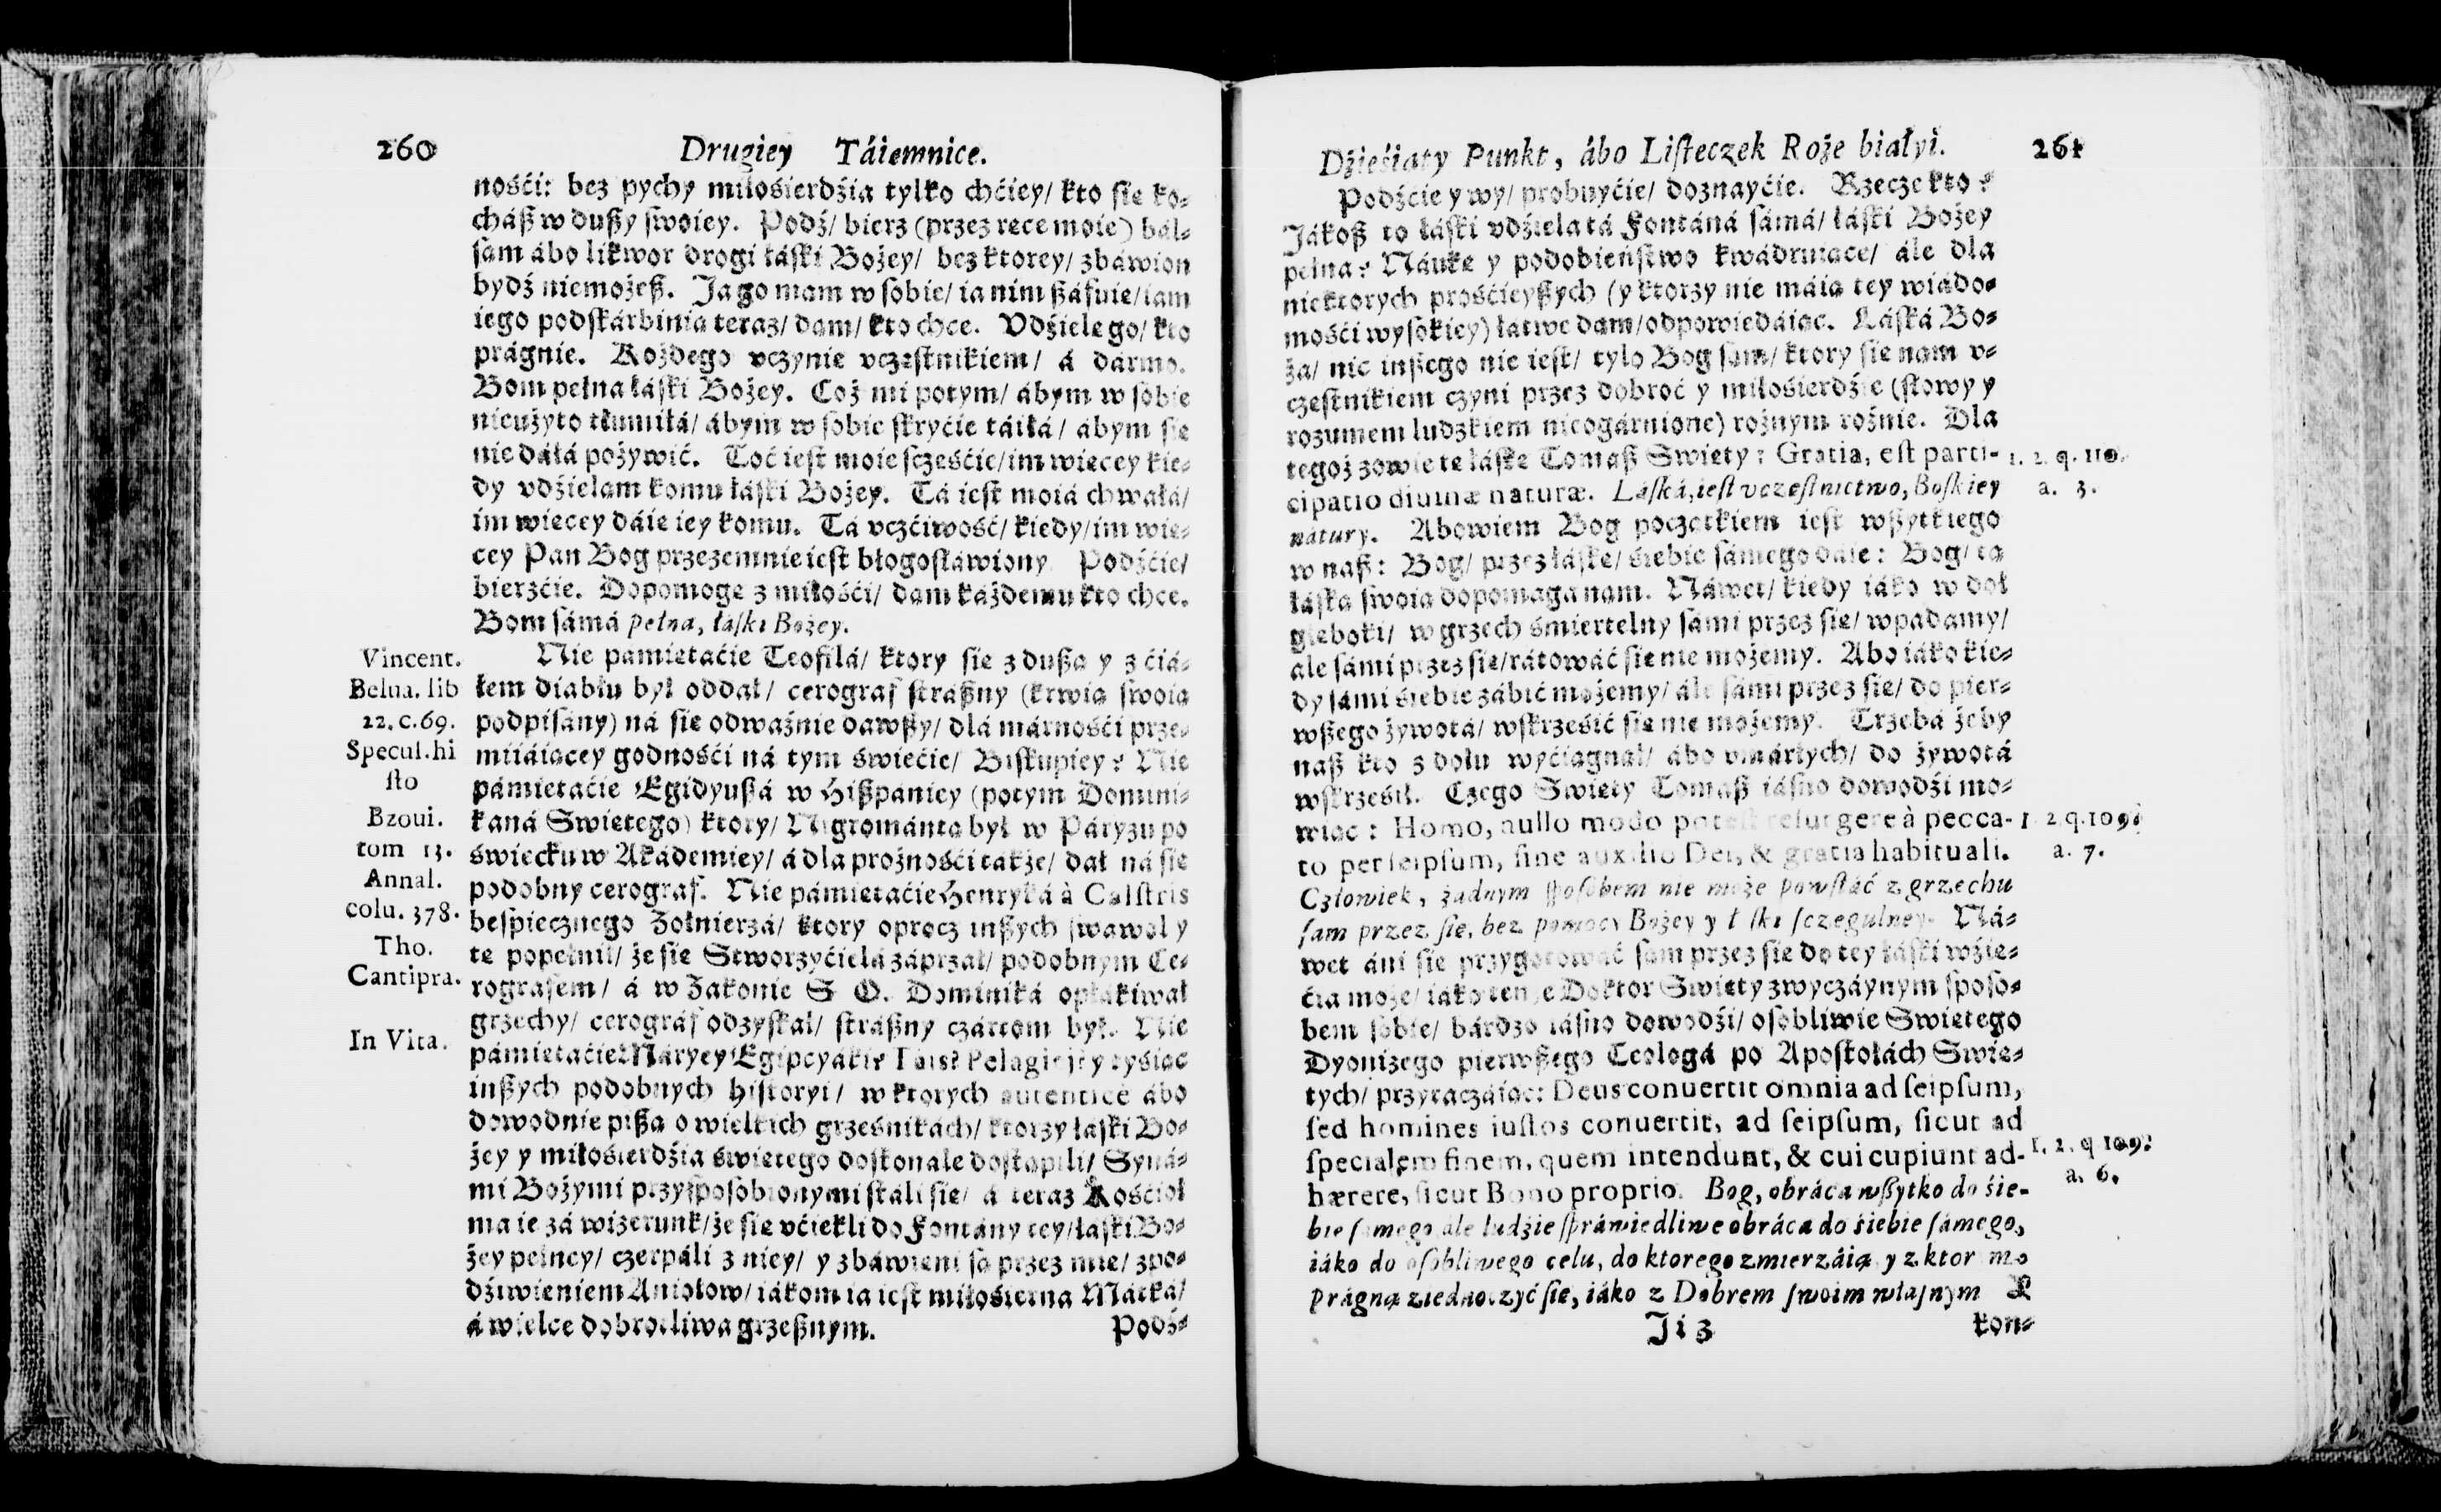 260
Drugiey Táiemnice.
nośći: bez pychy miłośierdźia tylko chćiey/ kto sie ko⸗
cháß w dußy swoiey. Podź/ bierz (przez rece moie) bál⸗
sam ábo likwor drogi łáski Bożey/ bez ktorey/ zbáwion
bydź niemożeß. Ja go mam w sobie/ ia nim ßáfuie/ iam
iego podskárbinia teraz/ dam/ kto chce. Vdźiele go/ kto
prágnie. Kożdego vczynie vczestnikiem/ á dármo.
Bom pełna łáski Bożey. Coż mi potym/ ábym w sobie
nieużyto tłumiłá/ ábym w sobie skryćie táiłá/ ábym sie
nie dáłá pożywić. Toć iest moie sczęśćie/ im wiecey kie⸗
dy vdźielam komu łáski Bożey. Tá iest moiá chwałá/
im wiecey dáie iey komu. Tá vczćiwość/ kiedy/ im wie⸗
cey Pan Bog przezemnie iest błogosłáwiony. Podźćie/
bierzćie. Dopomoge z miłośći/ dam káżdemu kto chce.
Bom sámá pełna, łáski Bożey.
Nie pamietaćie Teofilá/ ktory sie z dußa y z ćiá⸗
łem diabłu był oddał/ cerograf stráßny (krwia swoia
podpisány) ná sie odważnie dawßy/ dlá márnośći prze⸗
miiáiacey godnośći ná tym świećie/ Biskupiey? Nie
pámietaćie Egidyußá w Hißpániey (potym Domini⸗
kaná Swietego) ktory/ Nigrománta był w Páryzu po
świecku w Akádemiey/ á dla prożnośći tákże/ dał ná sie
podobny cerograf. Nie pámietaćie Henryká à Calstris
bespiecznego Zołnierzá/ ktory oprocz inßych swawol y
te popełnił/ że sie Stworzyćielá záprzał/ podobnym Ce⸗
rografem/ á w Zakonie S. O. Dominiká opłákiwał
grzechy/ cerográf odzyskał/ stráßny czártom był. Nie
pámietaćie Máryey Egipcyáki? Tais? Pelagiey? y tyśiac
inßych podobnych historyi/ w ktorych autentice ábo
dowodnie pißa o wielkich grześnikách/ ktorzy łáski Bo⸗
żey y miłośierdźia świetego doskonale dostąpili/ Syná⸗
mi Bożymi przysposobionymi stáli sie/ á teraz Kośćioł
ma ie zá wizerunk/ że sie vćiekli do Fontány tey/ łáski Bo⸗
żey pełney/ czerpáli z niey/ y zbáwieni są przez mie/ z po⸗
dźiwieniem Aniołow/ iákom ia iest miłośierna Mátká/
á wielce dobrotliwa grzeßnym.
Podź⸗
Vincent.
Belua. lib
22. c. 69.
Specul. hi
sto
Bzoui.
tom 13.
Annal.
colu. 378.
Tho.
Cantipra.
In Vita.
Dźieśiaty Punkt, ábo Listeczek Roże białyi.
261
Podźćie y wy/ probuyćie/ doznayćie. Rzecze kto?
Jákoß to łáski vdźiela tá Fontáná sámá/ łáski Bożey
pełna? Náuke y podobieństwo kwádruiace/ ále dla
niektorych prośćieyßych (y ktorzy nie máia tey wiádo⸗
mośći wysokiey) łatwe dam/ odpowiedáiac. Láská Bo⸗
ża/ nic inßego nie iest/ tylo Bog sam/ ktory sie nam v⸗
czestnikiem czyni przez dobroć y miłośierdźie (słowy y
rozumem ludzkiem nieogárnione) rożnym rożnie. Dla
tegoż zowie te łáske Tomaß Swiety: Gratia, est parti-
cipatio diuinæ naturæ. Láská, iest vczestnictwo, Boskiey
nátury. Abowiem Bog początkiem iest wßytkiego
w naß: Bog/ przez łáske/ śiebie sámego dáie: Bog/ ta
łáska swoia dopomaga nam. Náwet/ kiedy iáko w doł
gleboki/ w grzech śmiertelny sámi przez sie/ wpadamy/
ale sámi przez sie/ rátowáć sie nie możemy. Abo iáko kie⸗
dy sámi śiebie zábić możemy/ ále sámi przez sie/ do pier⸗
wßego żywotá/ wskrześić sie nie możemy. Trzebá żeby
naß kto z dołu wyćiągnał/ ábo vmárłych/ do żywotá
wskrześił. Czego Swiety Tomaß iásno dowodźi mo⸗
wiac: Homo, nullo modo potest resurgere à pecca-
to per seipsum, sine auxilio Dei, & gratia habituali.
Człowiek, żadnym sposobem nie może powstáć z grzechu
sam przez sie, bez pomocy Bożey y łáski sczegulney. Ná⸗
wet áni sie przygotować sam przez sie do tey łáski wźie⸗
ćia może/ iáko tenże Doktor Swiety zwyczáynym sposo⸗
bem sobie/ bárdzo iásno dowodźi/ osobliwie Swietego
Dyonizego pierwßego Teologá po Apostołách Swie⸗
tych/ przytaczáiac: Deus conuertit omnia ad seipsum,
sed homines iustos conuertit, ad seipsum, sicut ad
specialem finem, quem intendunt, & cui cupiunt ad-
hærere, sicut Bono proprio. Bog, obráca wßytko do śie-
bie sámego ále ludźie spráwiedliwe obráca do śiebie sámego,
iáko do osobliwego celu, do ktorego zmierzáią y z ktorymo
prágną ziednoczyć sie, iáko z Dobrem swoim własnym &
Ji 3
kon⸗
1. 2. q. 110.
a. 3.
1. 2. q. 109.
a. 7.
1. 2. q 109.
a. 6.